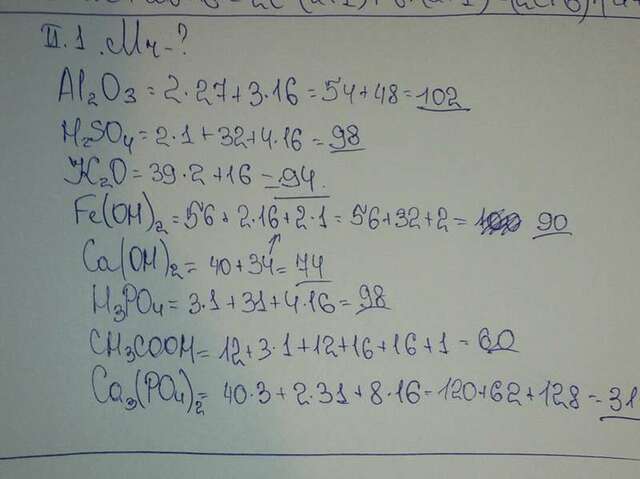 II.1. Mr-?
Al₂O₃ = 2·27+3·16 = 54+48 = 102
H₂SO₄ = 2·1+32+4·16 = 98
K₂O = 39·2+16 = 94.
Fe(OH)₂ = 56+2·16+2·1 = 56+32+2 = 90
Ca(OH)₂ = 40+34 = 74
H₃PO₄ = 3·1+31+4·16 = 98
CH₃COOH = 12+3·1+12+16+16+1 = 60
Ca₃(PO₄)₂ = 40·3+2·31+8·16 = 120+62+128 = 31